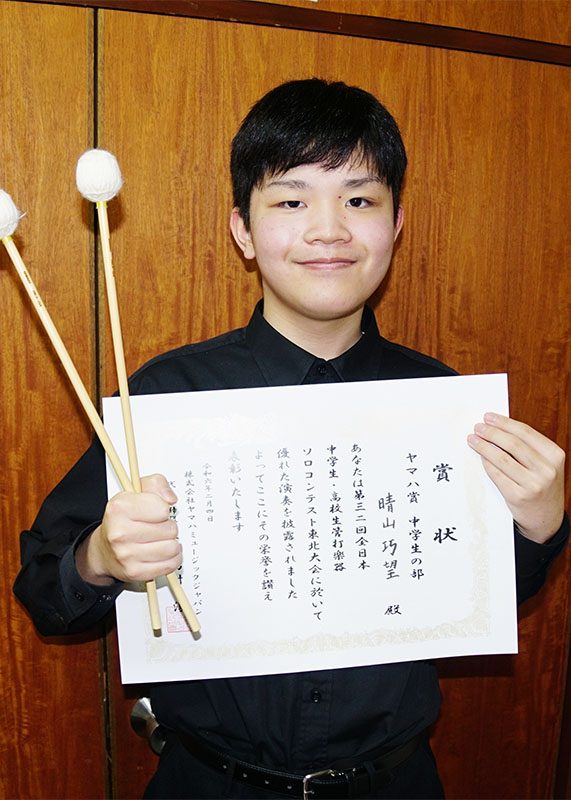 賞状
ヤマハ賞 中学生の部
晴山巧望 殿
あなたは第三二回全日本
中学生・高校生管打楽器
ソロコンテスト東北大会に於いて
優れた演奏を披露されました
よってここにその栄挙を讃え
表彰いたします
令和六年二月四日
株式会社ヤマハミュージックジャパン